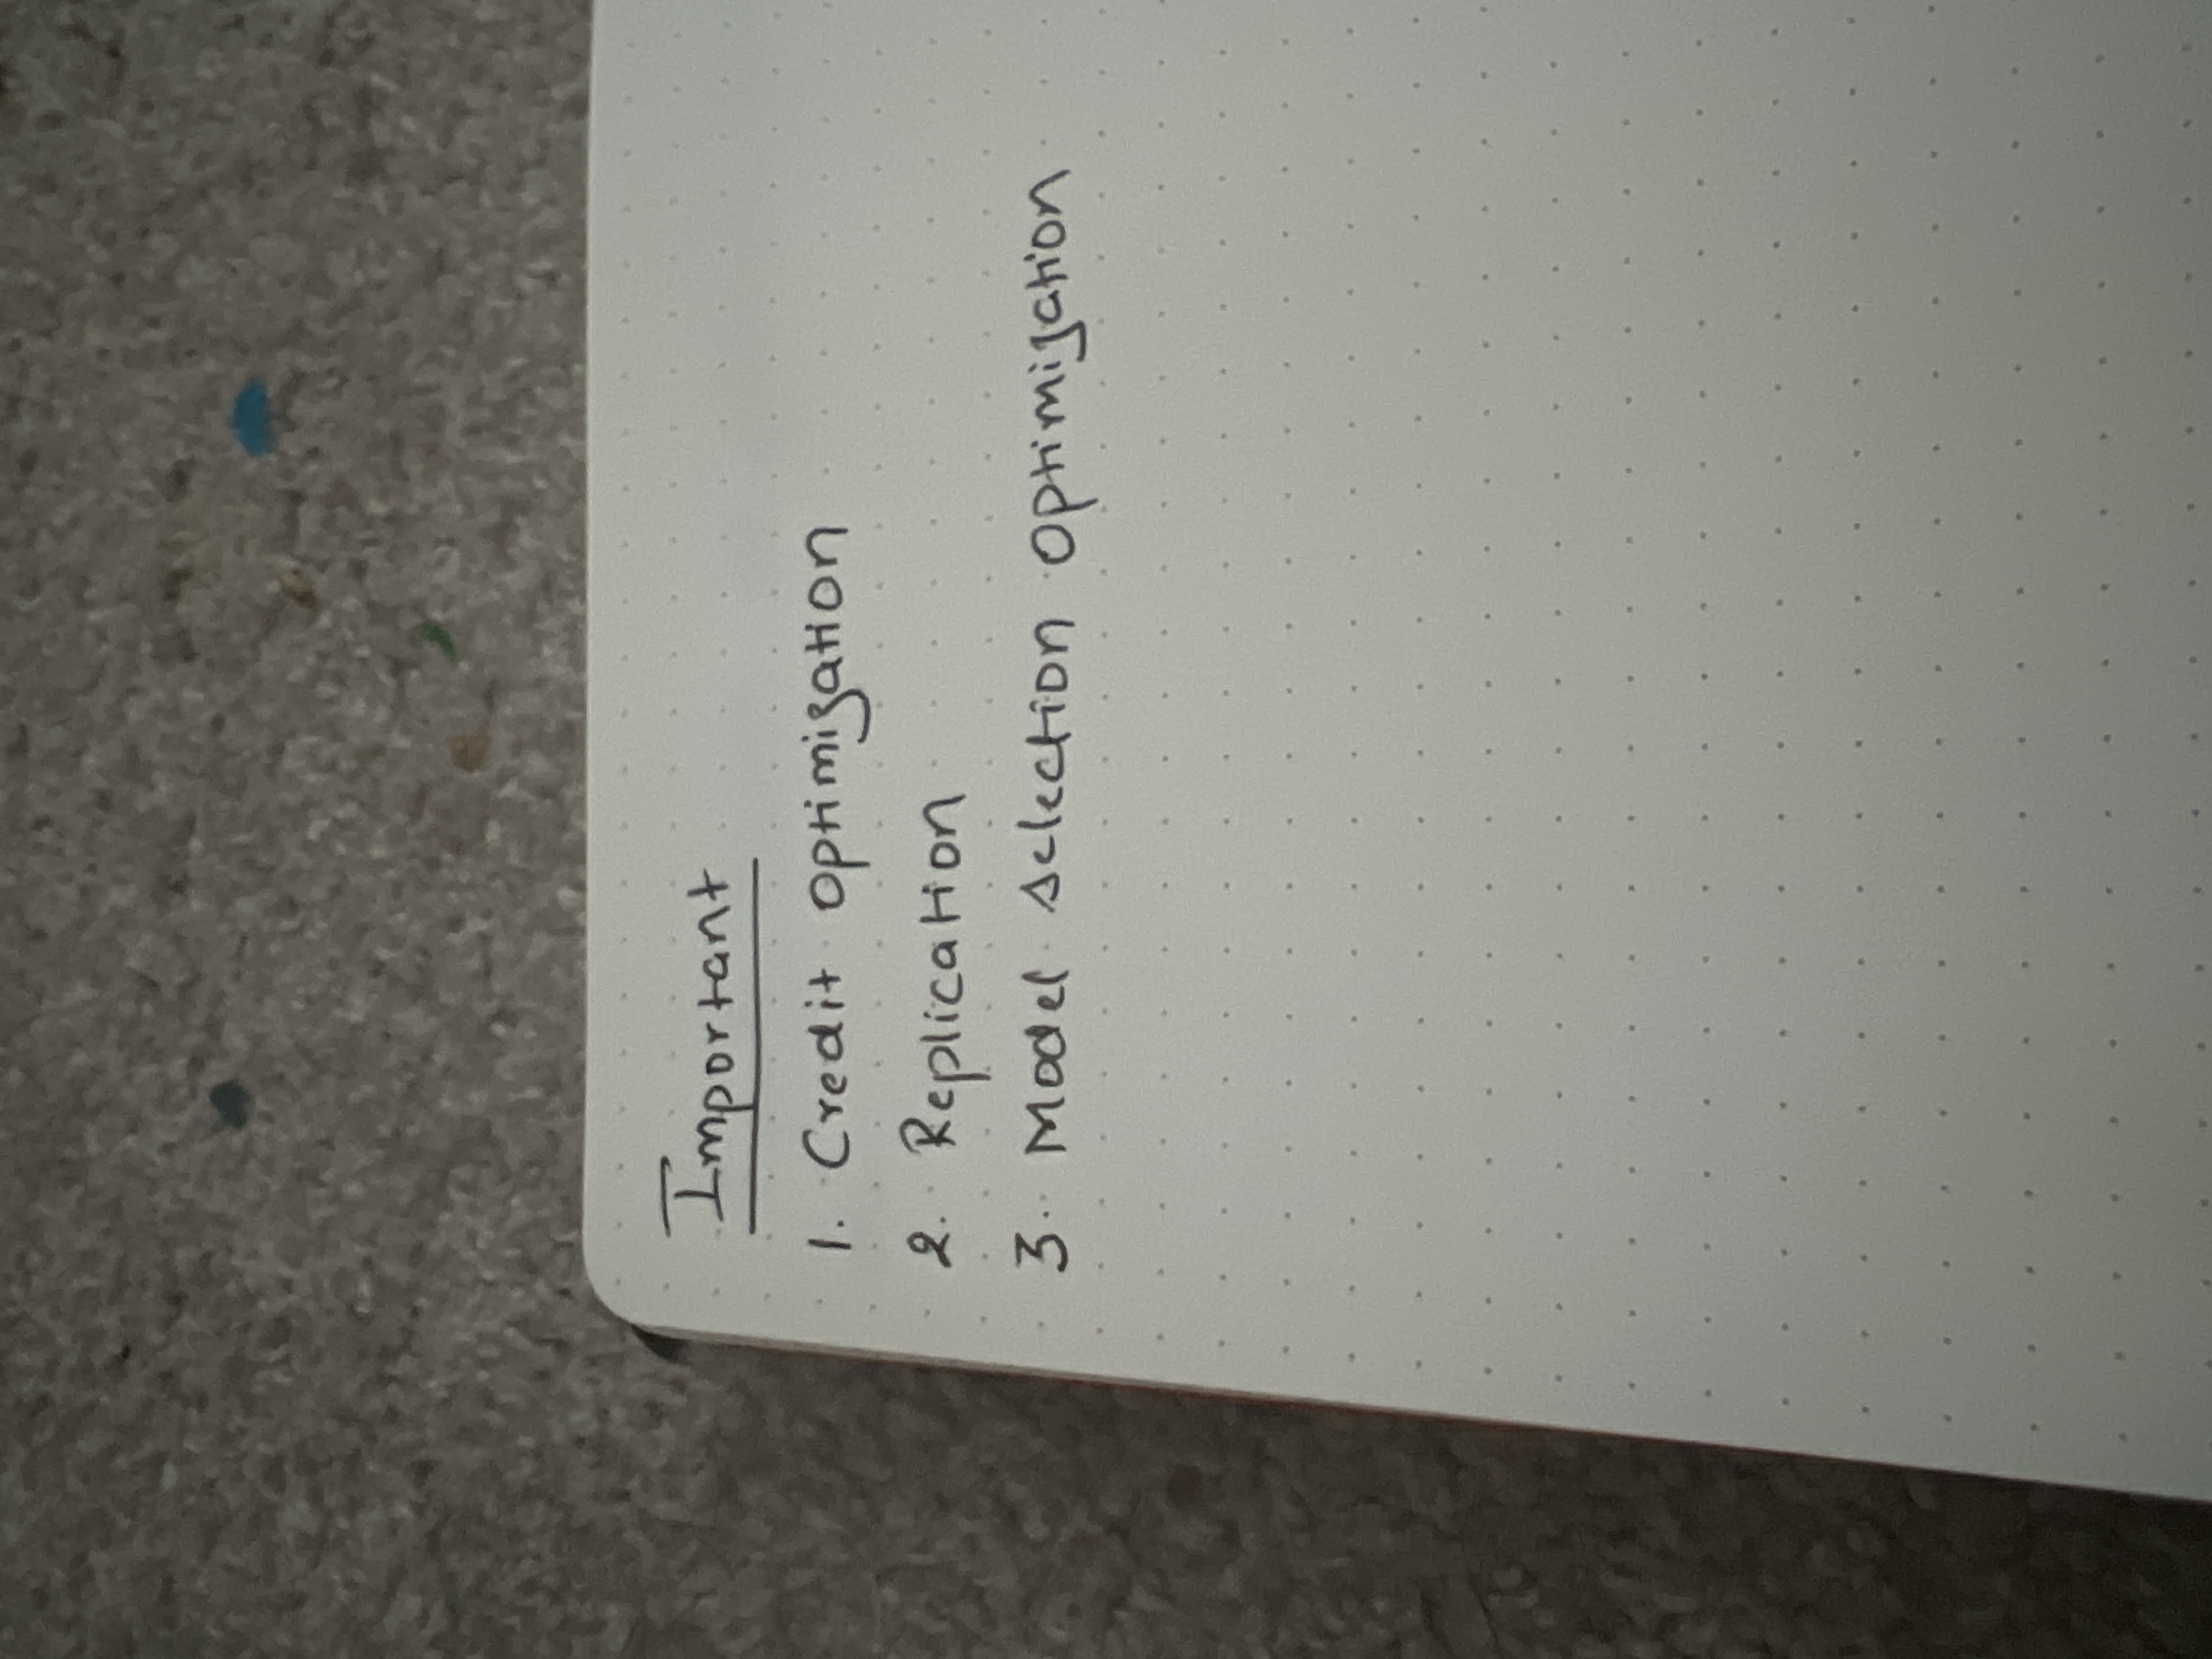 Important
1. Credit Optimization
2. Replication
3. Model selection Optimization